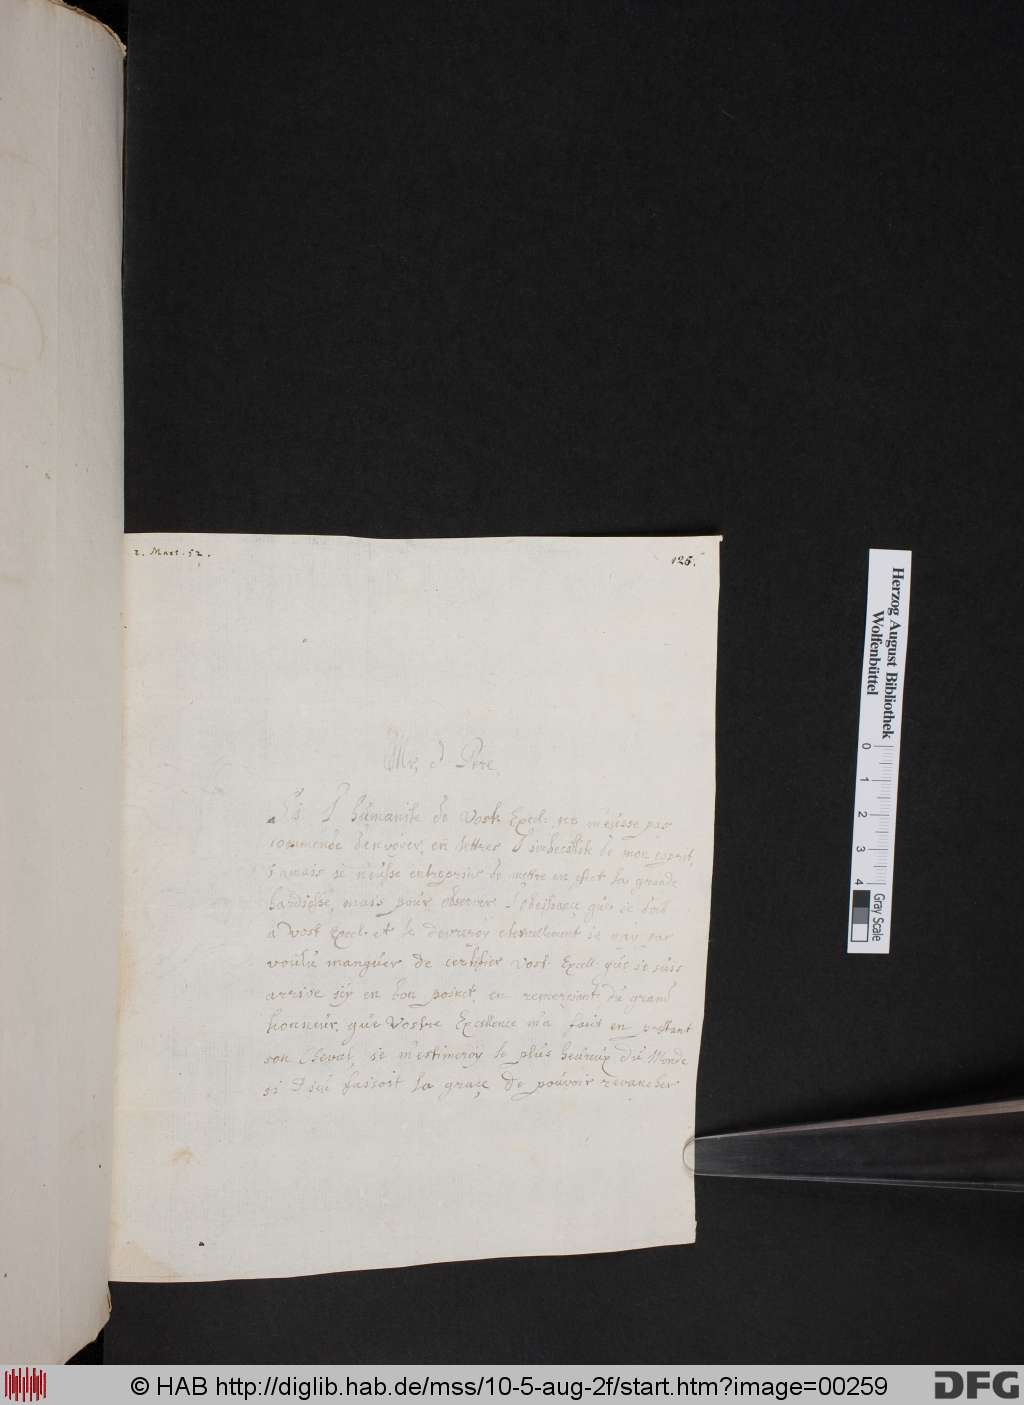 2. Mart. 52.
125.
Mr, et Pere,
Si l'humanite de Vost. Excel. ne m'eusse pas
commende d'envoyer, en lettres l'imbecillite de mon esprit,
jamais je n'eusse entreprins de mettre en effect la grande
hardiesse, mais pour observer l'obeissance que je doib
a Vost Excel. et le devreroy eternellement je nay par
voulu manquer de certifier Vost. Excell. que je suis
arrive icy en bon poinct, en remerciant du grand
honneur, que Vostre Excellence m'a faict en prestant
son Cheval, je m'estimeroy le plus heureux du Monde
si Dieu faisoit la grace de pouvoir revancher
Herzog August Bibliothek
Wolfenbüttel
0 1 2 3 4
Gray Scale
© HAB http://diglib.hab.de/mss/10-5-aug-2f/start.htm?image=00259
DFG